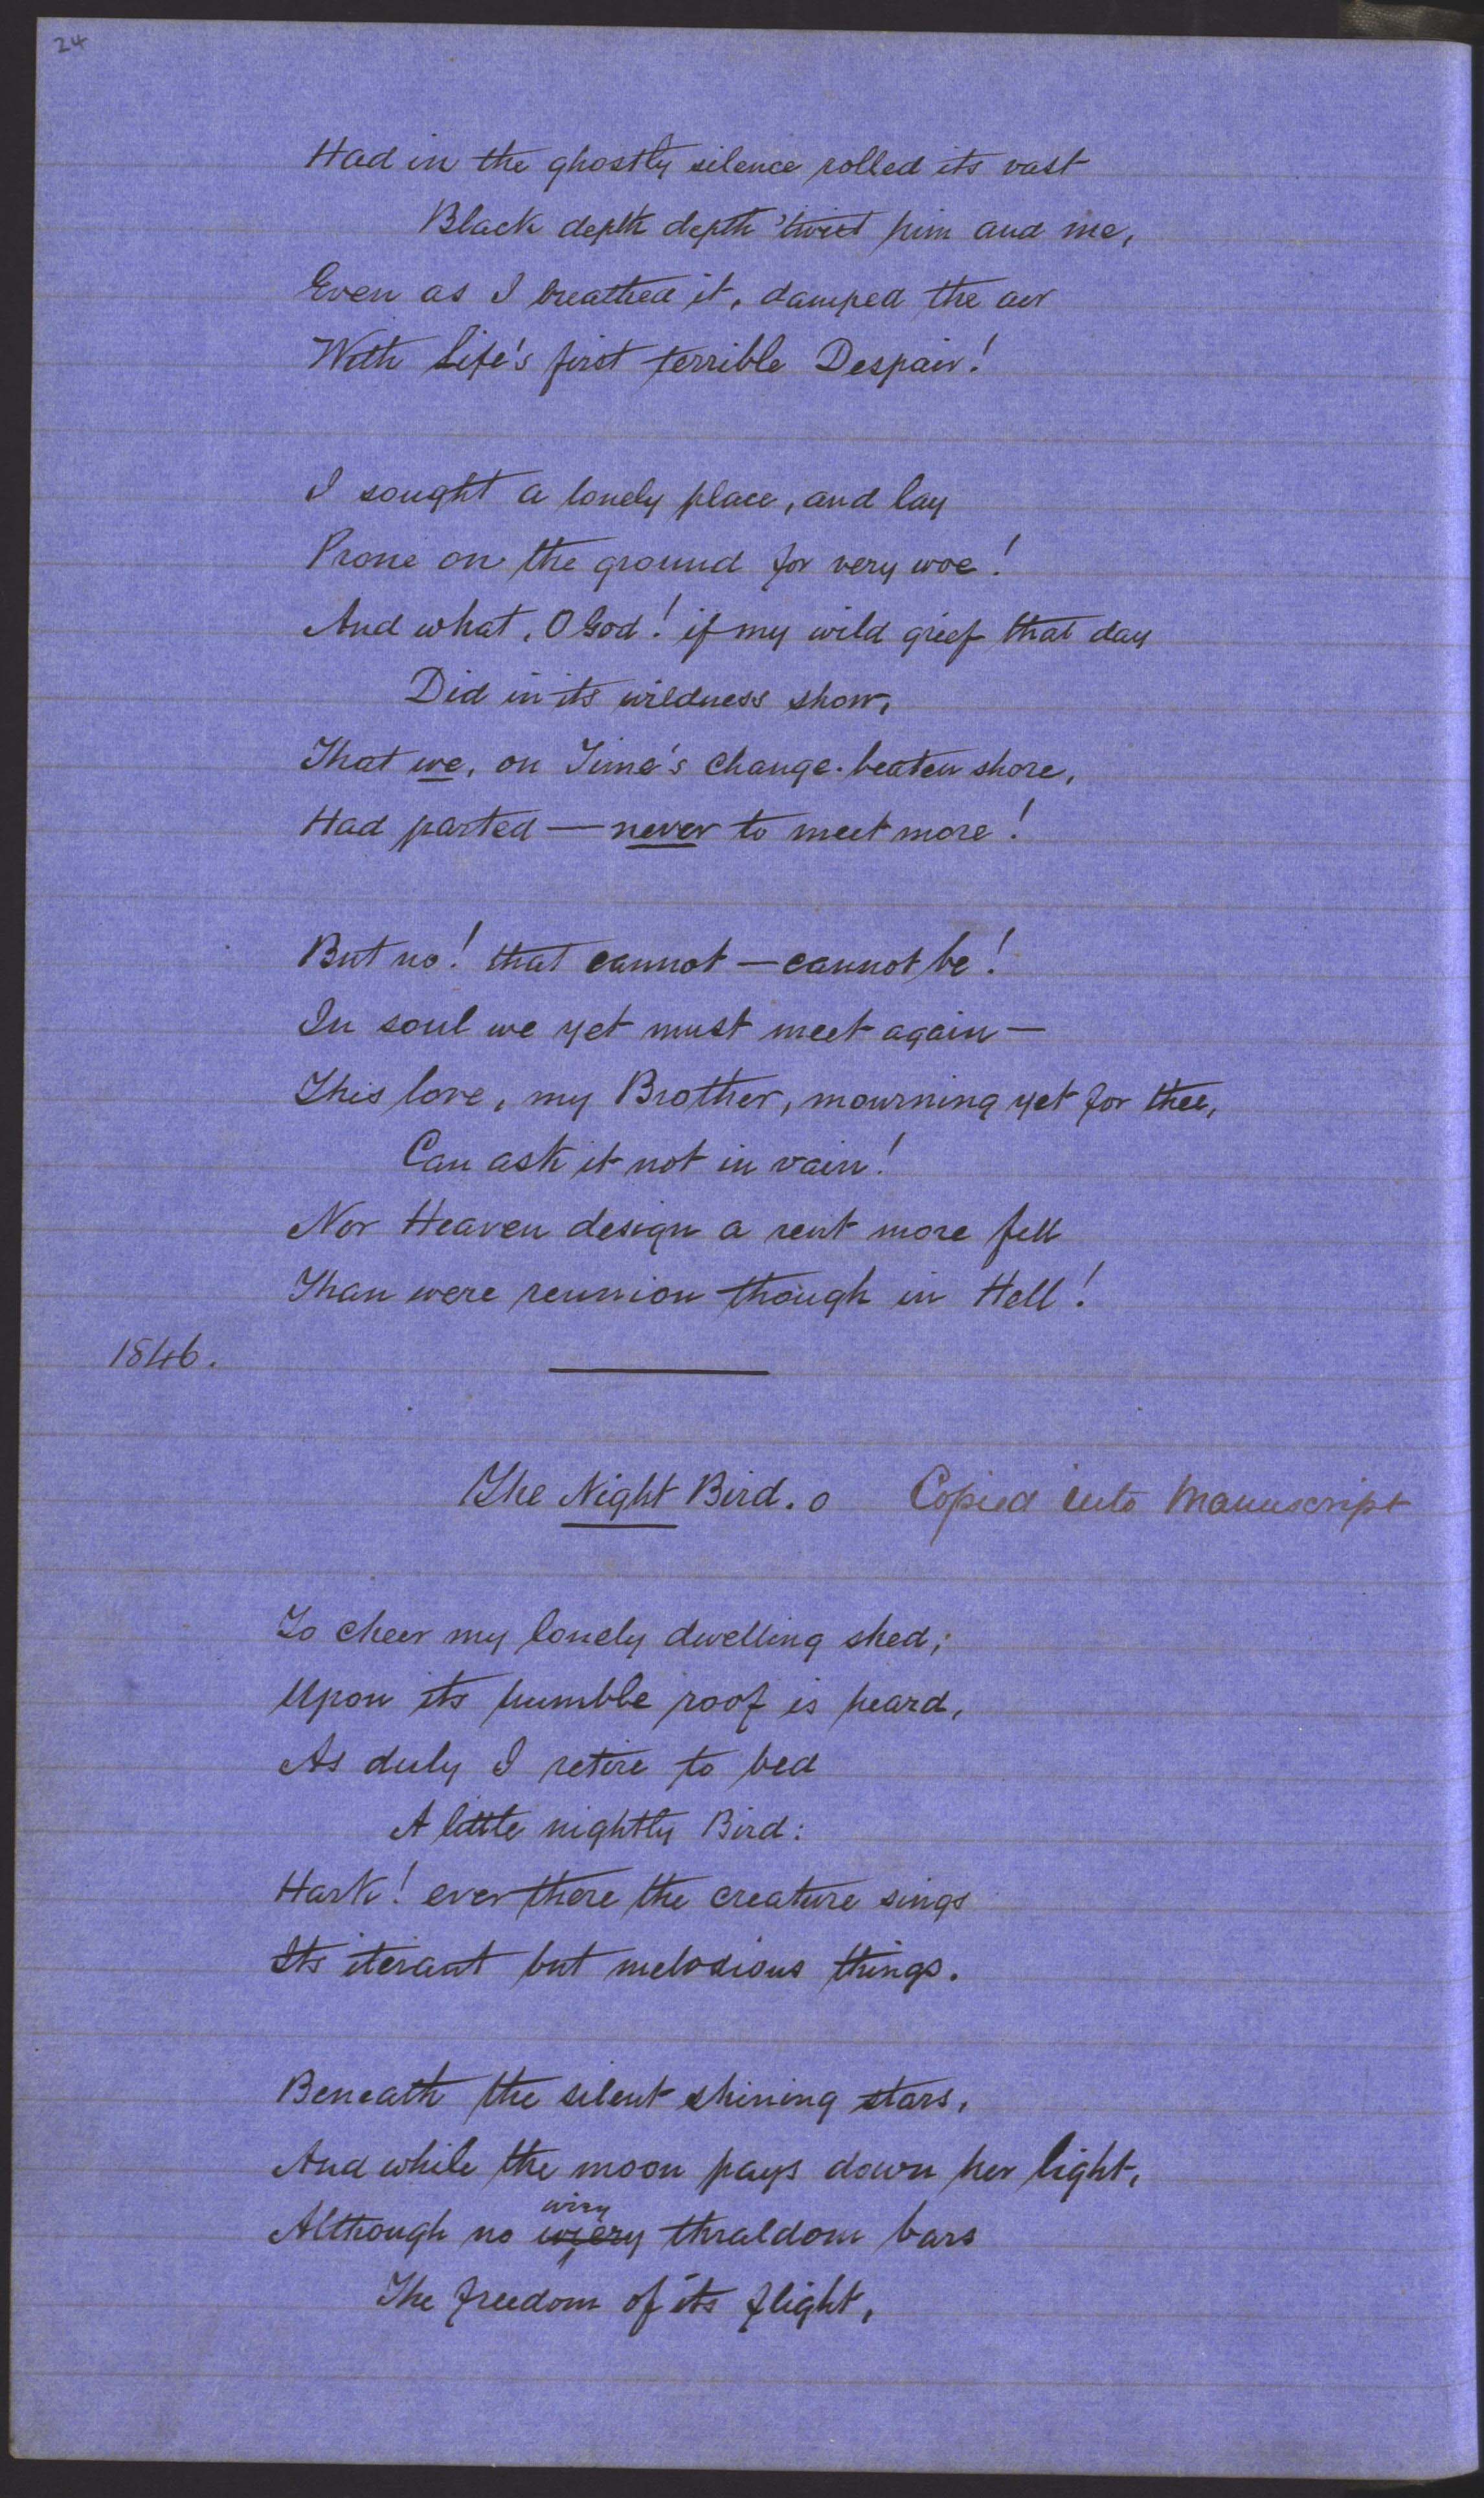 24
Had in the ghostly silence rolled its vast
Black depth depth 'twixt him and me,
Even as I breathed it, damped the air
With Life's first terrible Despair!
I sought a lonely place, and lay
Prone on the ground for very woe!
And what, O God! if my wild grief that day
Did in its wildness show,
That we, on Time's change-beaten shore,
Had parted — never to meet more!
But no! that cannot — cannot be!
In soul we yet must meet again —
This love, my Brother, mourning yet for thee,
Can ask it not in vain!
Nor Heaven design a rent more fell
Than were reunion though in Hell!
1846.
The Night Bird. o Copied into Manuscript
To cheer my lonely dwelling shed;
Upon its humble roof is heard,
As duly I retire to bed
A little nightly Bird:
Hark! ever there the creature sings
Its iterant but melodious things.
Beneath the silent shining stars,
And while the moon pays down her light,
wiry
Although no wiery thraldom bars
The freedom of its flight,